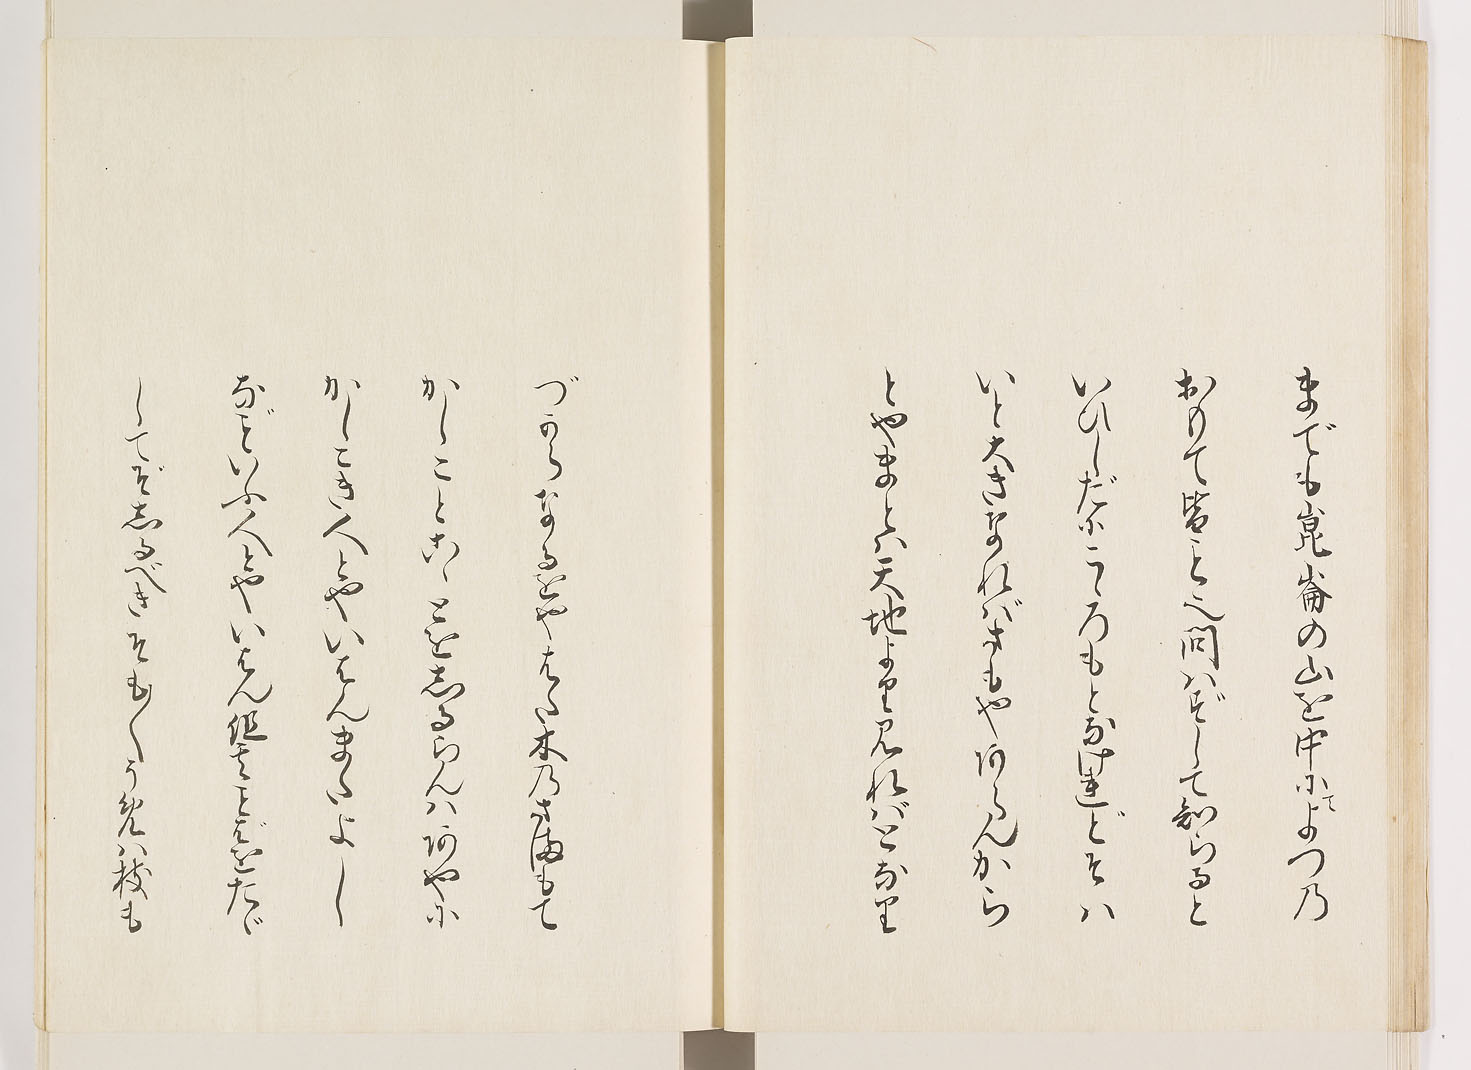 までも崑崙の山を中にてよつの
おもて皆こと之問はずして知らると
いひしだにこゝろもとなけれどそは
いと大きなればさもやあらんから
とやまとは天地より見ればとなり
づからなるをやまた木のさまもて
かしこときゝとを志るらんはあやに
かしこき人とやいはんまたいよゝ
などいふ人とやいはん但そのことばをたゞ
してぞ志るべきそも〳〵うめは枝も